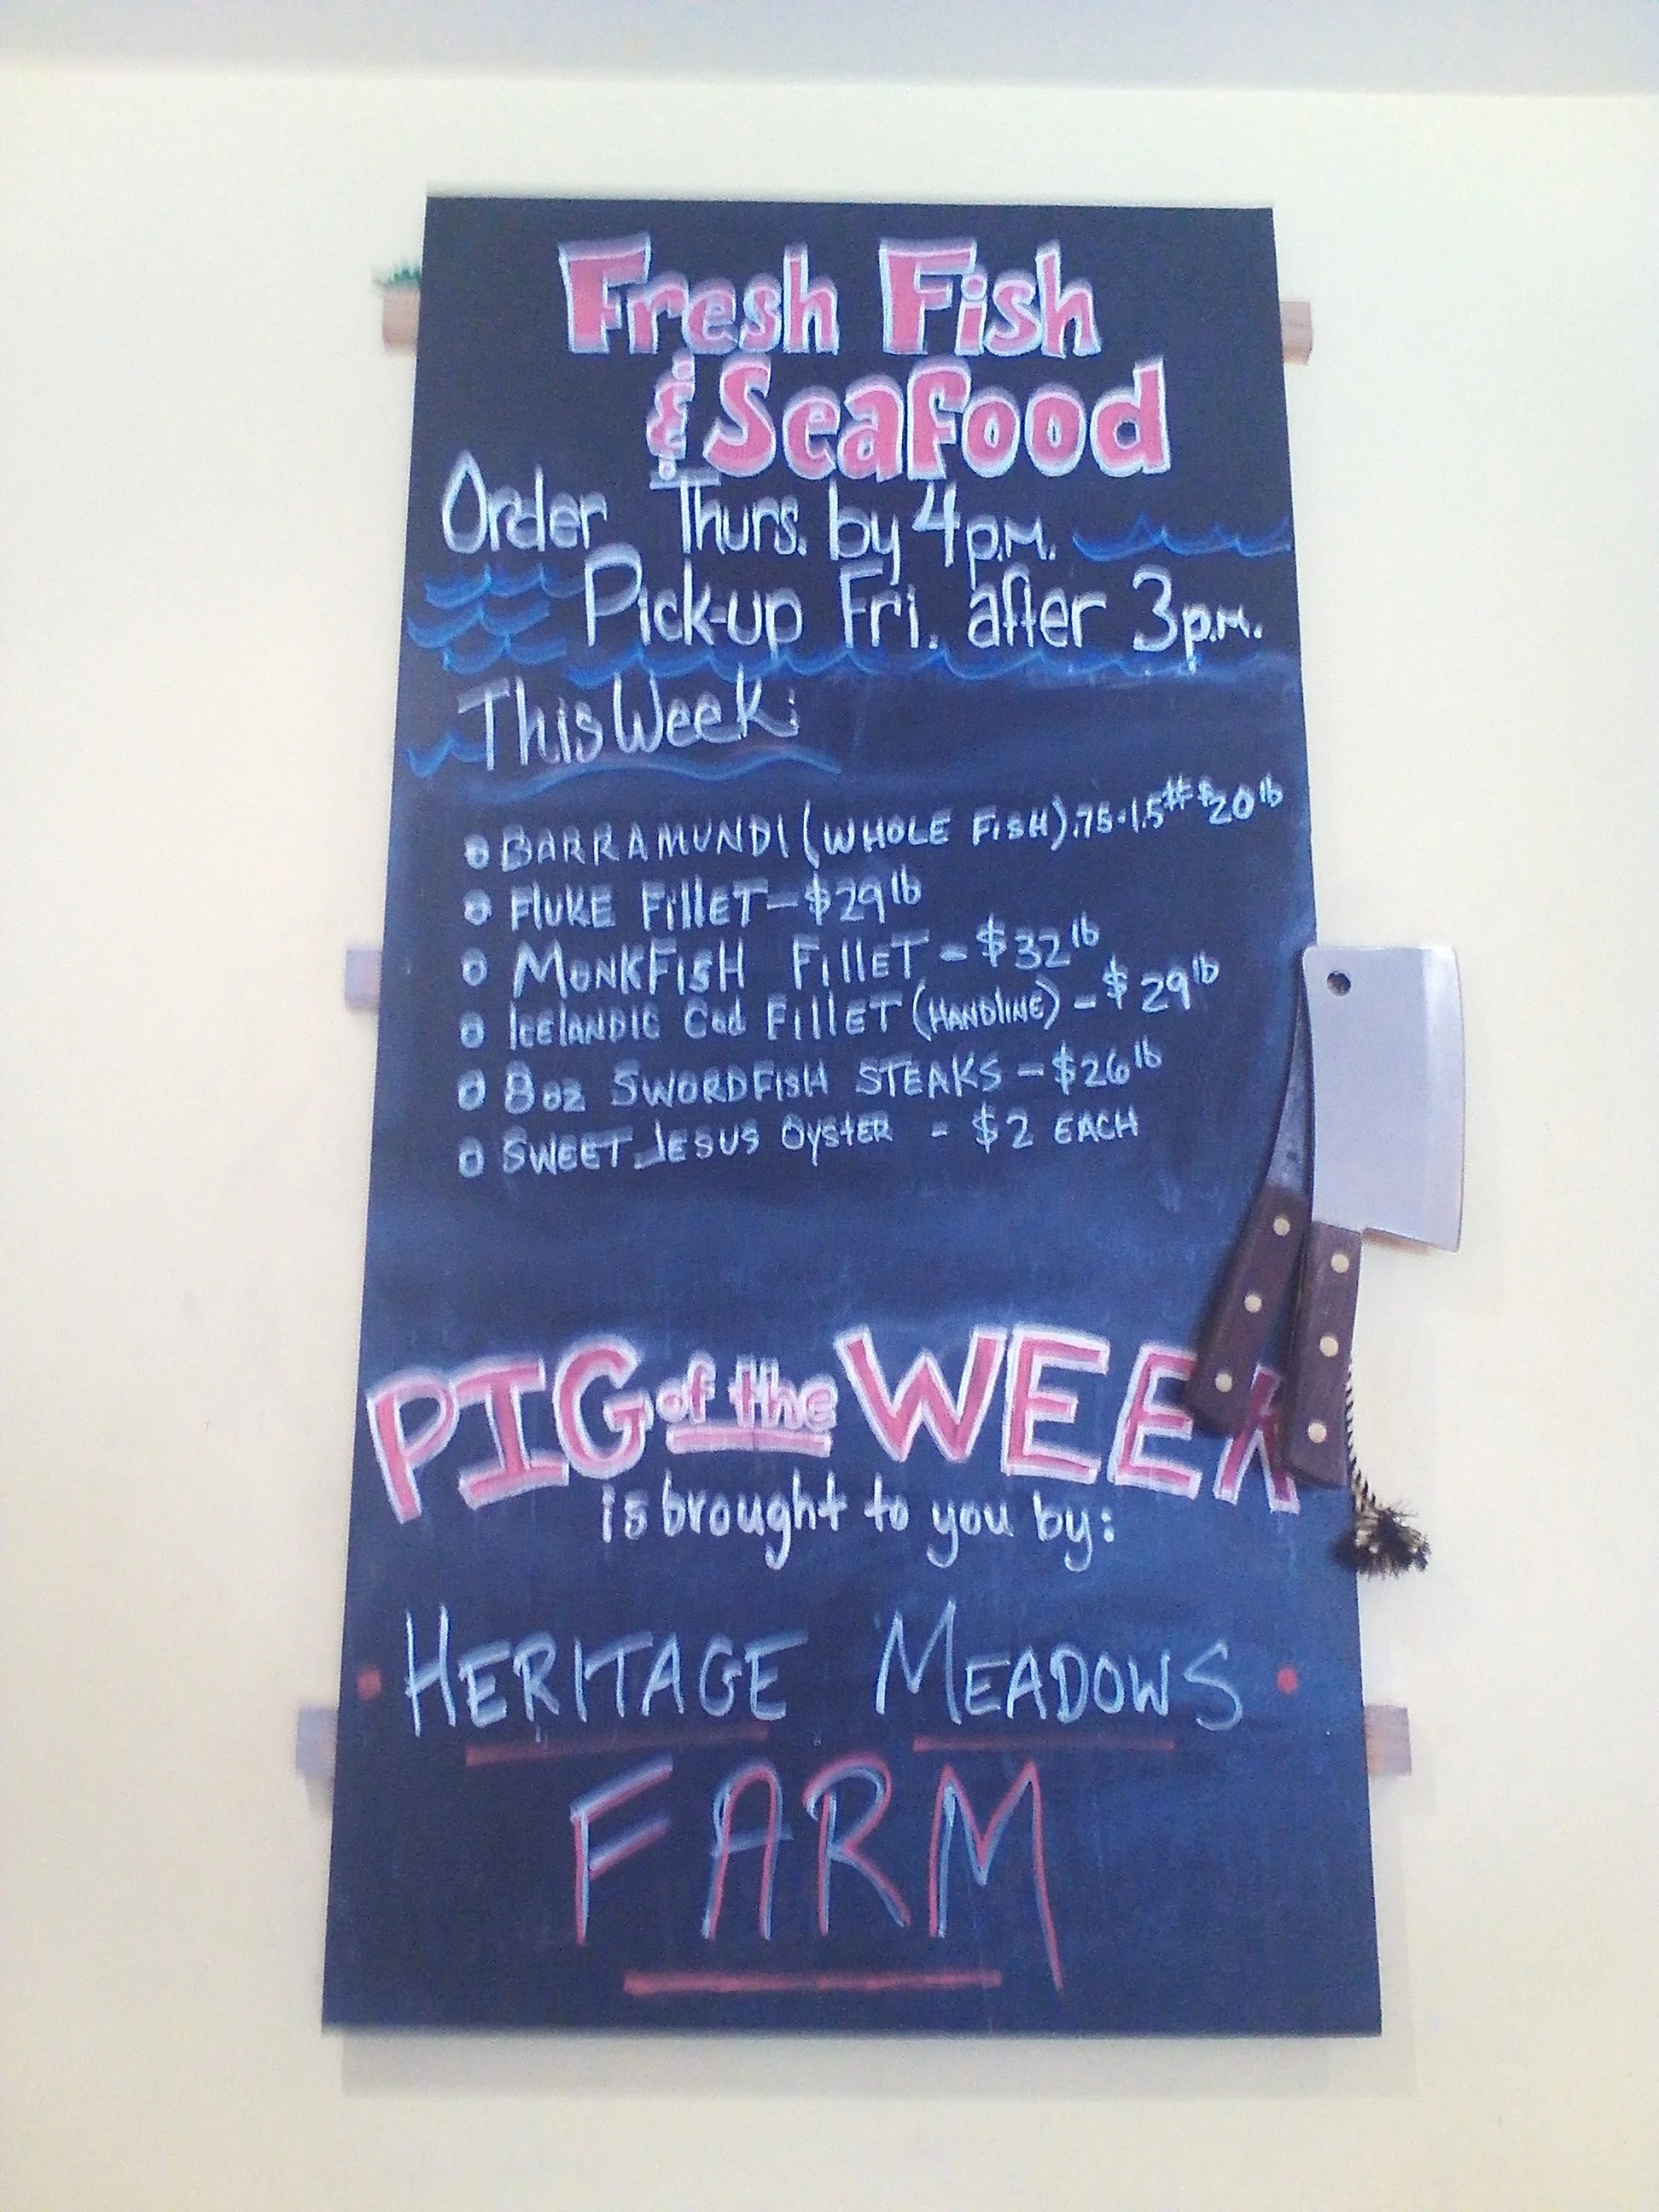 Fresh Fish
& Seafood
Order Thurs. by 4p.m.
Pick-up Fri. after 3p.m.
This Week:
BARRAMUNDI (WHOLE FISH) .75-1.5# $20 lb
FLUKE FILLET - $29 lb
MONKFISH FILLET - $32 lb
ICELANDIC Cod FILLET (HANDLINE) - $29 lb
8oz SWORDFISH STEAKS - $26 lb
SWEET JESUS OYSTER - $2 EACH
PIG of the WEEK
is brought to you by:
HERITAGE MEADOWS
FARM